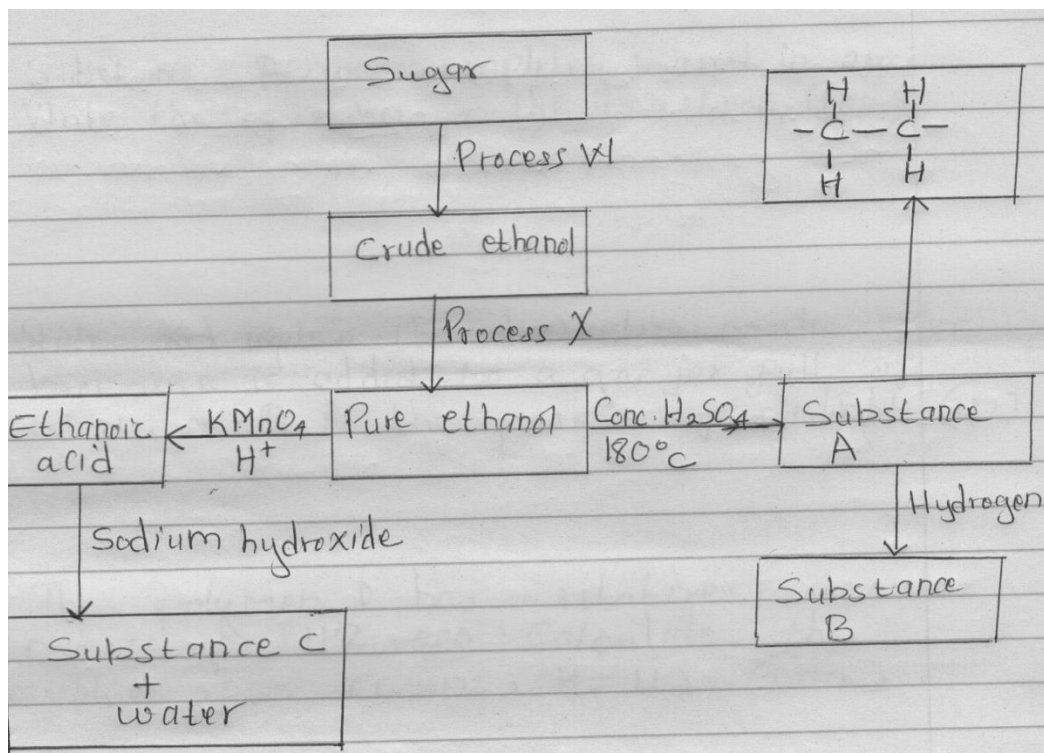 Sugar
Process W
Crude ethanol
Process X
Ethanoic acid
KMnO₄
H⁺
Pure ethanol
Conc. H₂SO₄
180°C
Substance
A
H H
– C – C –
H H
Sodium hydroxide
Hydrogen
Substance C
+
water
Substance
B